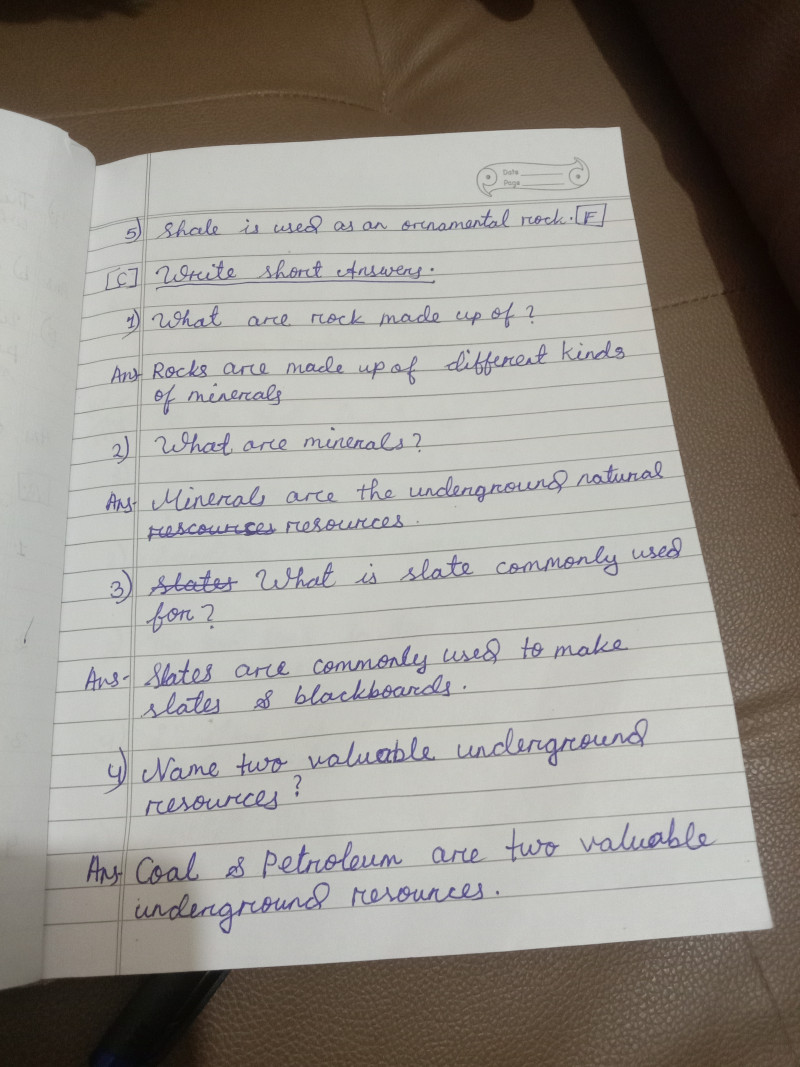 Date
Page
5) Shale is used as an ornamental rock. [F]
[C] Write short Answers.
1) What are rock made up of?
Ans- Rocks are made up of different kinds
of minerals
2) What are minerals?
Ans- Minerals are the underground natural
rescources resources.
3) slates What is slate commonly used
for?
Ans- Slates are commonly used to make
slates & blackboards.
4) Name two valuable underground
resources?
Ans- Coal & Petroleum are two valuable
underground resources.